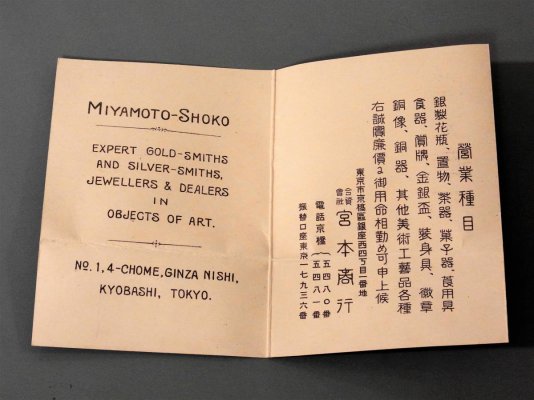 MIYAMOTO-SHOKO
EXPERT GOLD-SMITHS
AND SILVER-SMITHS,
JEWELLERS & DEALERS
IN
OBJECTS OF ART.
NO. 1, 4-CHOME, GINZA NISHI,
KYOBASHI, TOKYO.
營業種目
銀製花瓶、置物、茶器、菓子器、食用具
食器、賞牌、金銀盃、裝身具、徽章
銅像、銅器、其他美術工藝品各種
右誠實廉價ニ御用命相勤め可申上候
東京市京橋區銀座西四丁目一番地
合資會社 宮本商行
電話京橋 五四八〇番
五四八一番
振替口座東京一七九三六番